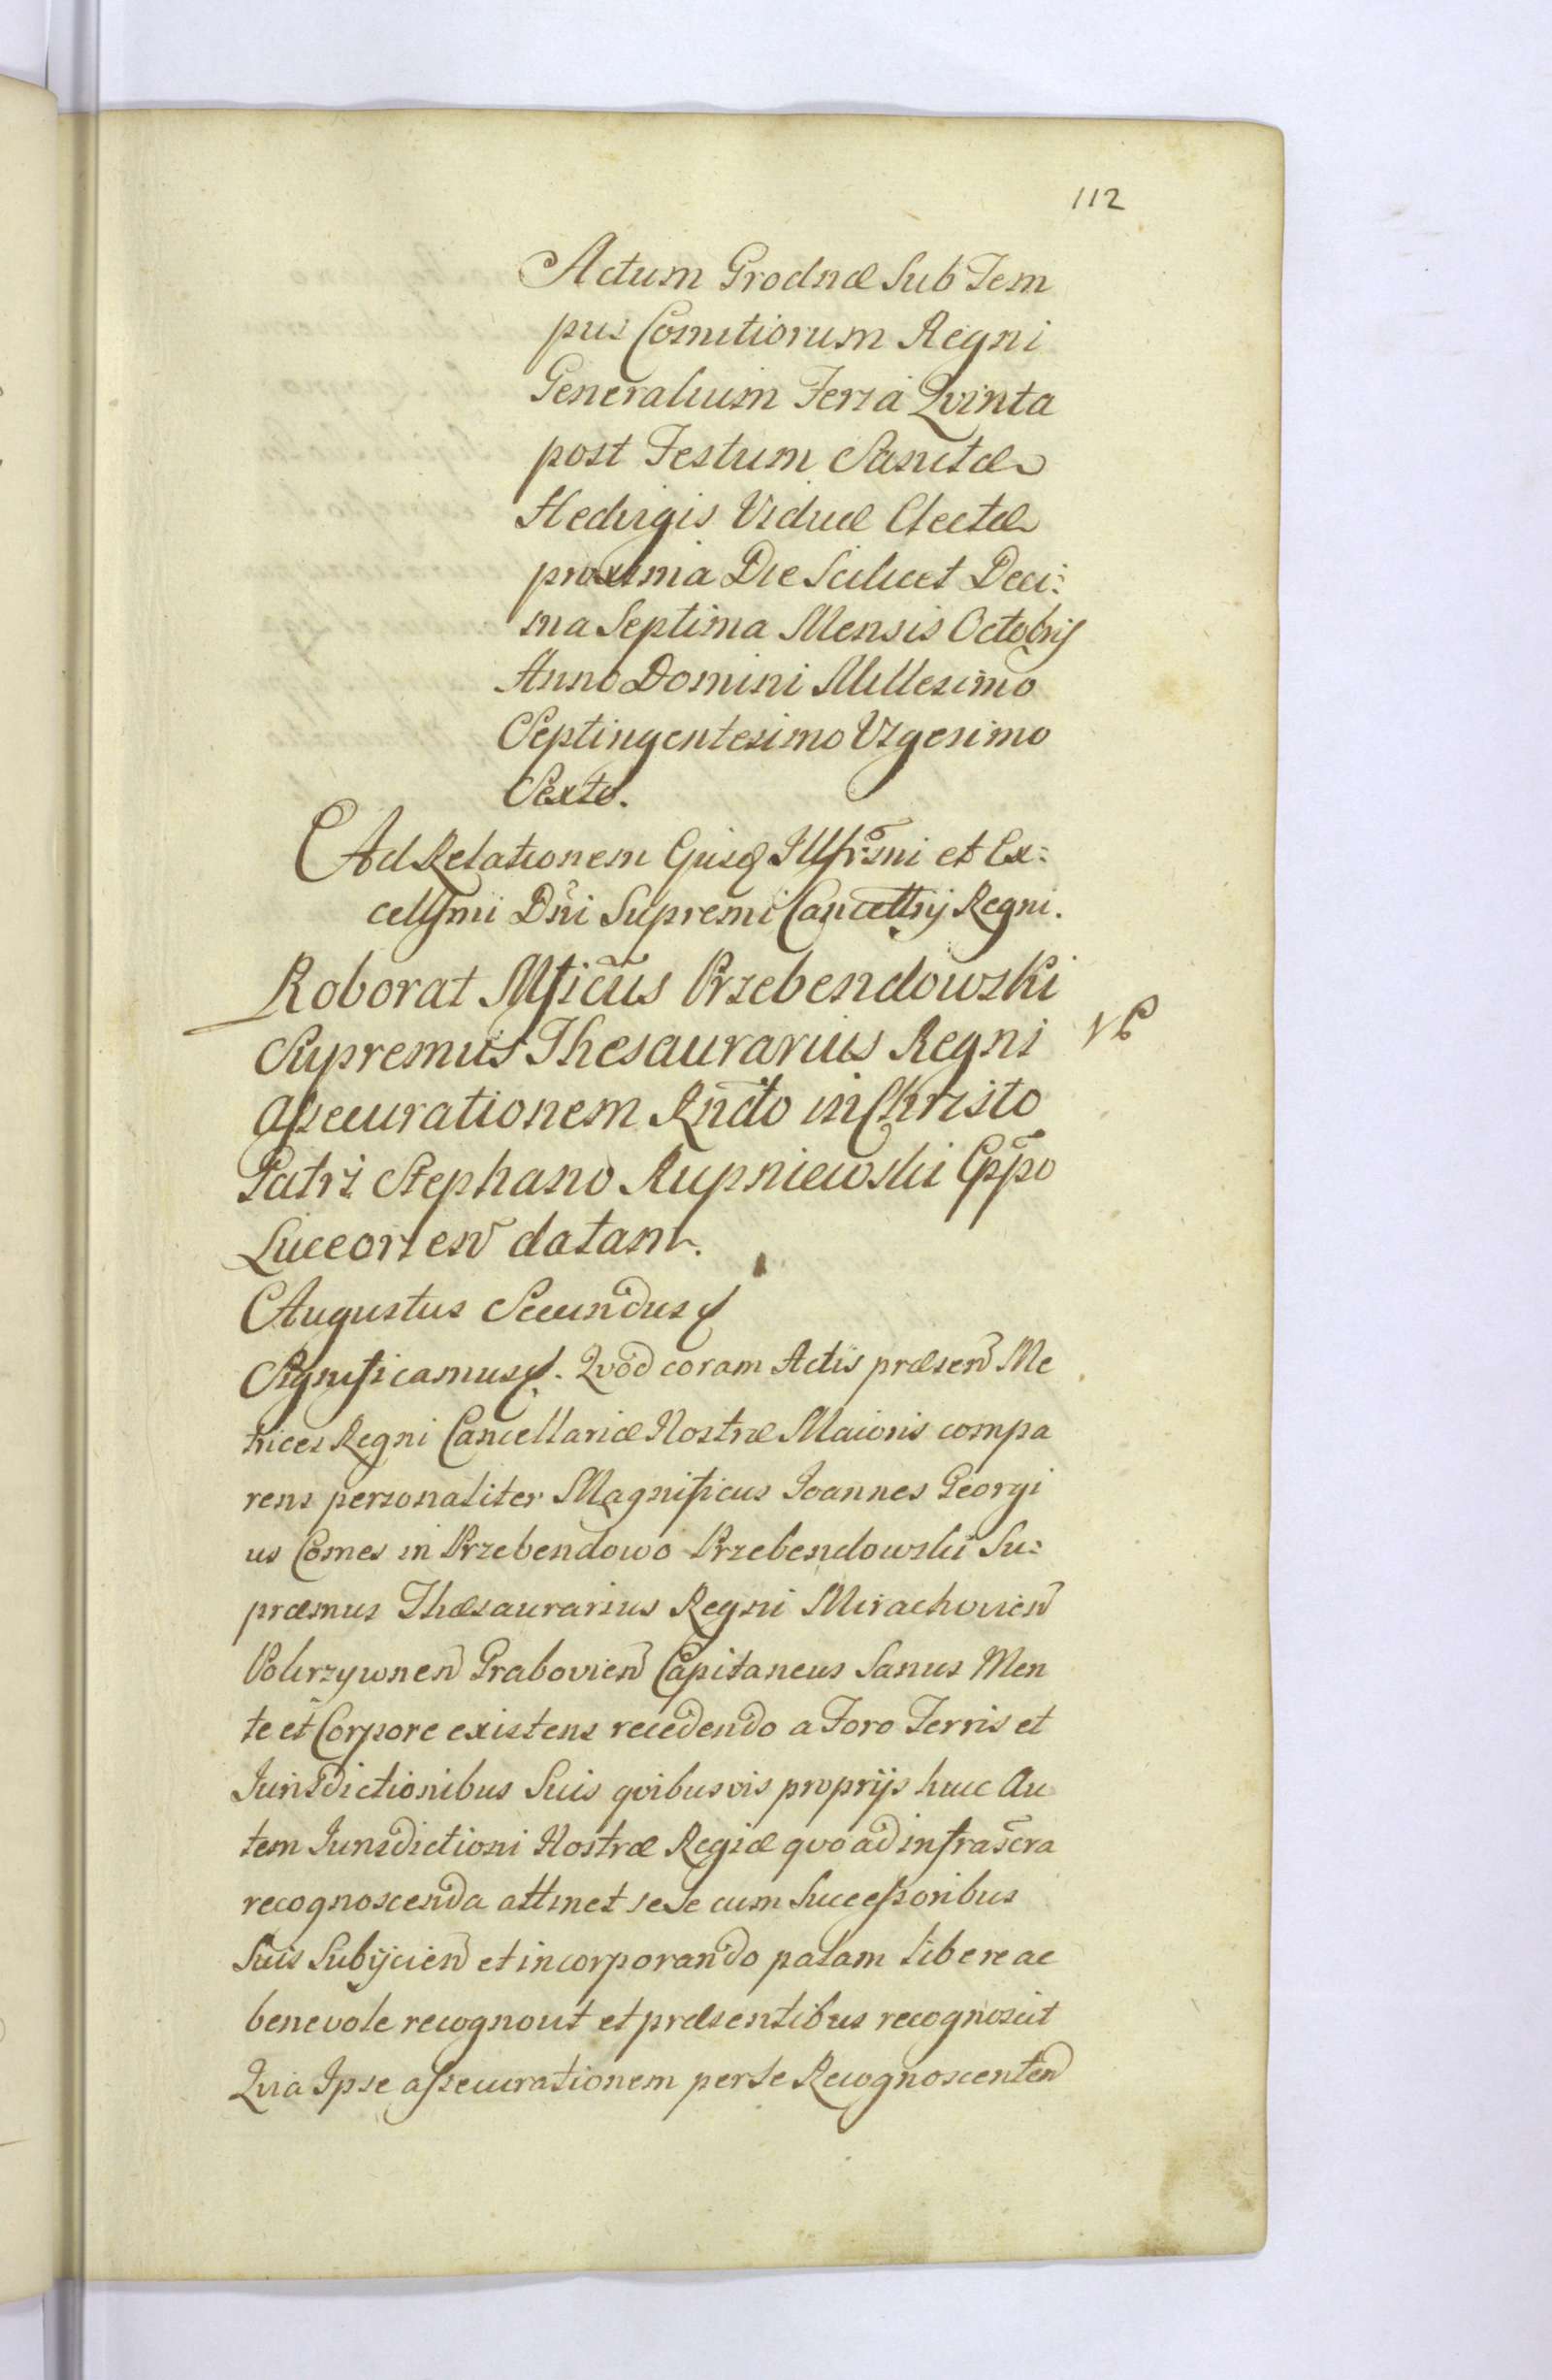 112
Actum Grodnæ Sub Tem
pus Comitiorum Regni
Generalium Feria Qvinta
post Festum Sanctæ
Hedvigis Viduæ Electæ
proxima Die Scilicet Deci:
ma Septima Mensis Octobris
Anno Domini Millesimo
Septingentesimo Vigesimo
Sexto.
Ad Relationem Ejusq Illsr̃mi et Ex:
cellsmi Dñi Supremi Cancellrij Regni.
Roborat Mficus Przebendowski
Supremus Thesaurarius Regni
assecurationem Rndo in Christo
Patri Stephano Rupniewski Eppo
Luceorien datam.
Augustus Secundus
Significamus. Qvod coram Actis præsen Me
trices Regni Cancellariæ Nostræ Maioris compa
rens personaliter Magnificus Joannes Georgi
us Comes in Przebendowo Przebendowski Su:
præmus Thæsaurarius Regni Mirachovien
Pokrzywnen Grabovien Capitaneus Sanus Men
te et Corpore existens recedendo a Foro Terris et
Jurisdictionibus Suis qvibusvis proprijs huic Au
tem Jurisdictioni Nostræ Regiæ qvo ad infrascra
recognoscenda attinet sese cum Successoribus
Suis Subijcien et incorporando palam libere ac
benevole recognovit et præsentibus recognoscit
Qvia Ipse assecurationem per Se Recognoscenten